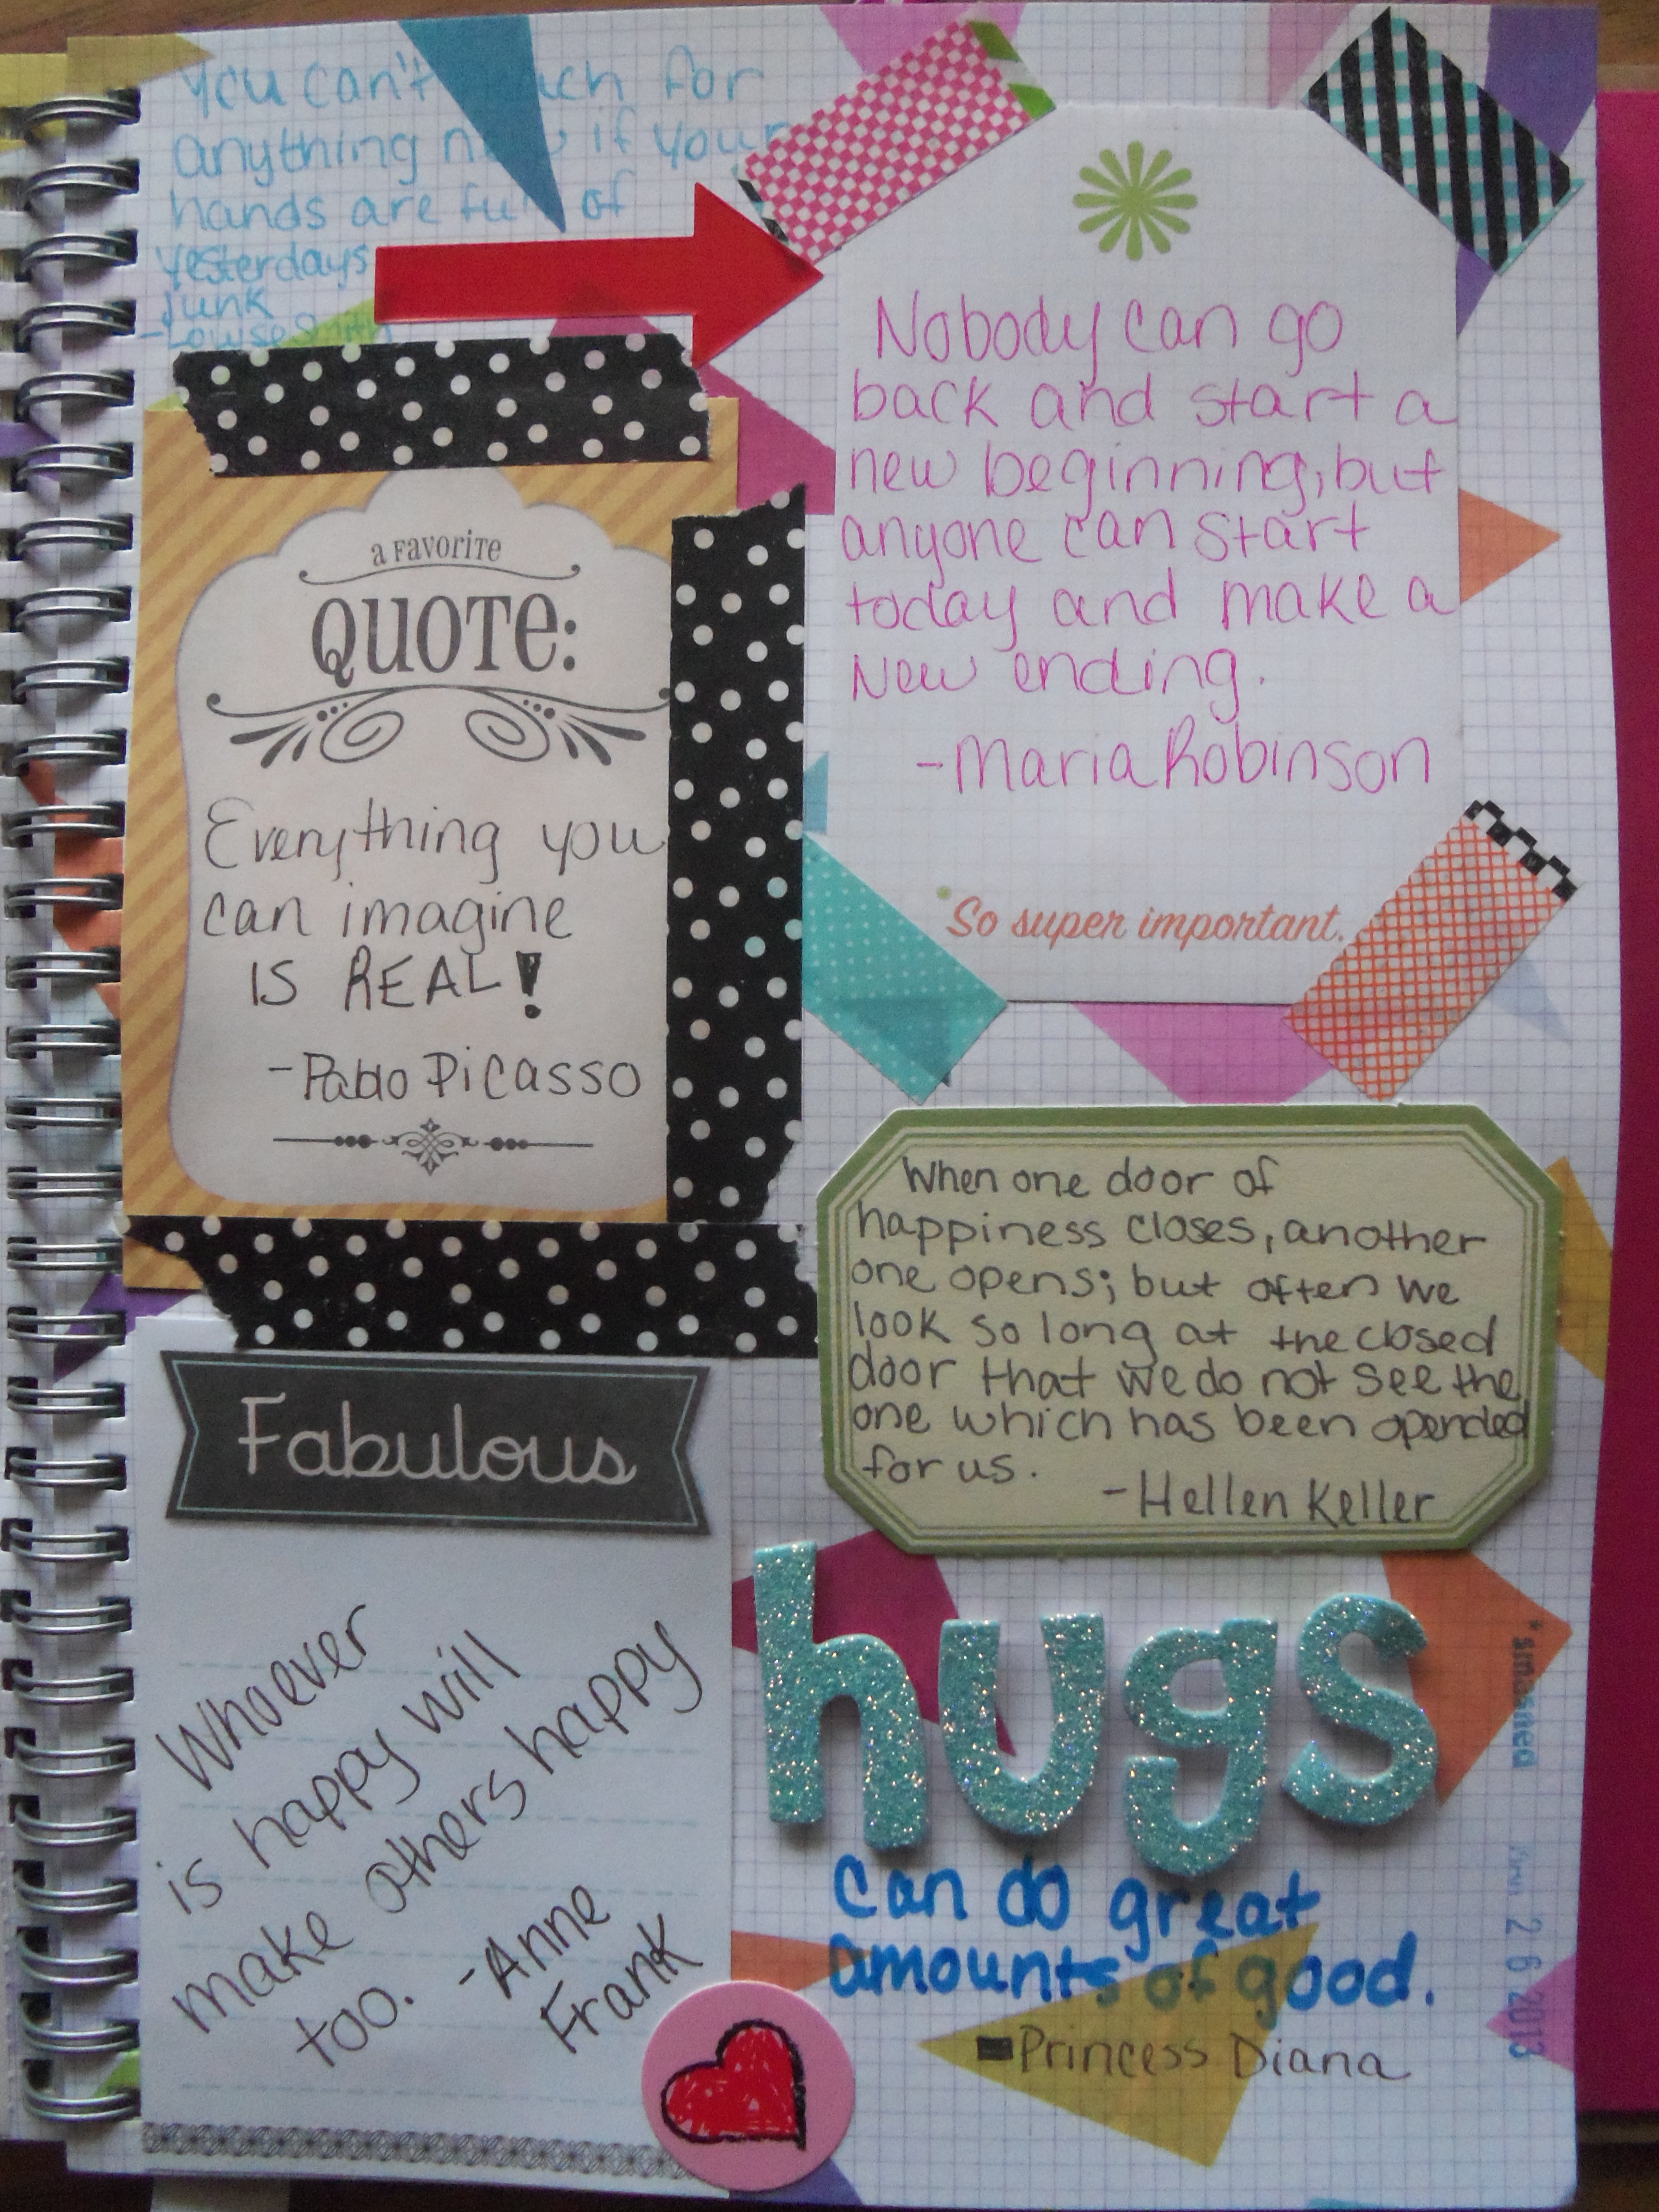 You can't reach for
anything new if your
hands are full of
yesterdays
junk
-Louise Smith
a FAVORITE
QUOTE:
Everything you
can imagine
IS REAL!
-Pablo Picasso
Fabulous
Whoever
is happy will
make others happy
too. -Anne
Frank
Nobody can go
back and start a
new beginning, but
anyone can start
today and make a
New ending.
-Maria Robinson
So super important.
When one door of
happiness closes, another
one opens; but often we
look so long at the closed
door that we do not see the
one which has been opended
for us.
-Hellen Keller
hugs
Can do great
amounts of good.
-Princess Diana
2 6 2013